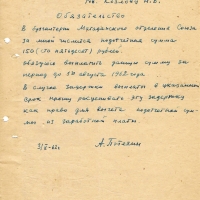 тов. Козлову Н.В.
Обязательство
В бухгалтерии Магаданского отделения Союза
за мной числится подотчетная сумма
150 (сто пятьдесят) рублей.
Обязуюсь выплатить данную сумму за
период до 1962 года
В случае задержки выплаты в указанный
срок прошу расценивать эту задержку
как право для вычета подотчетной сум-
мы из заработной платы.